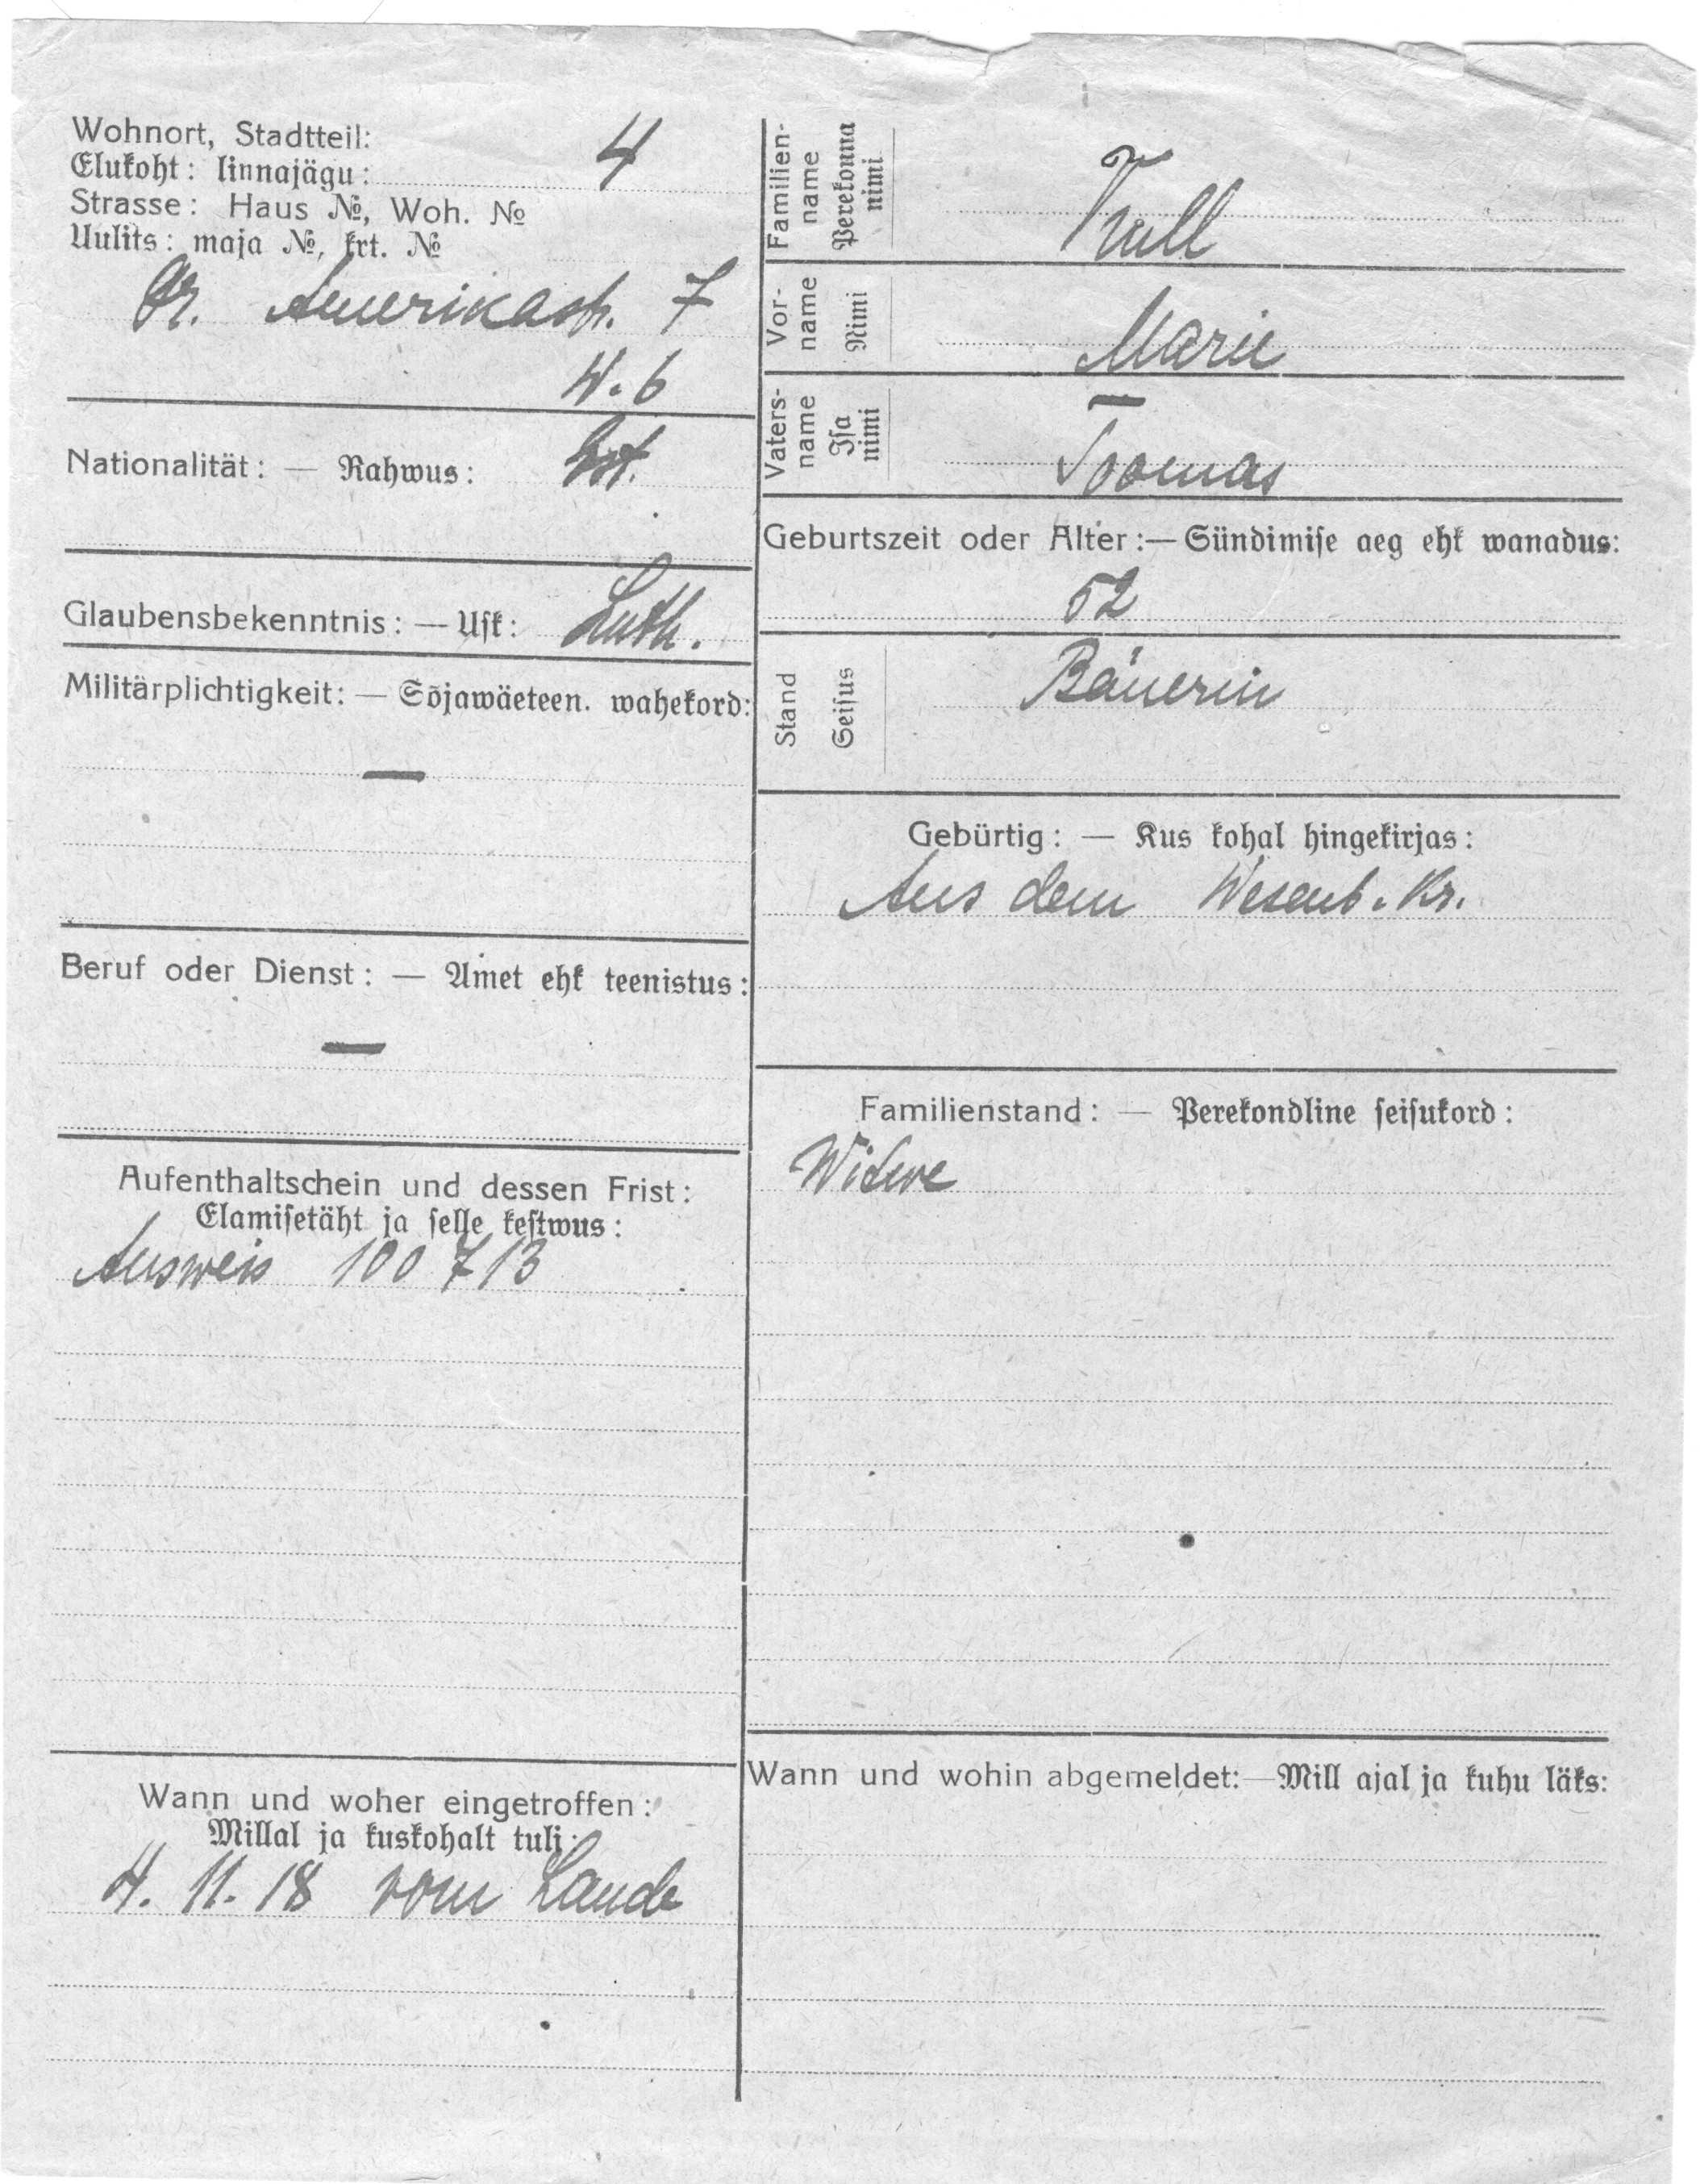 Wohnort, Stadtteil:
Elukoht: linnajägu: 4
Strasse: Haus №, Woh. №
Uulits: maja №, krt. №
Gr. Amerikastr. 7
W. 6
Nationalität: — Rahwus: Est.
Glaubensbekenntnis: — Uſk: Luth.
Militärplichtigkeit: — Sõjawäeteen. wahekord:
—
Beruf oder Dienst: — Amet ehk teenistus:
—
Aufenthaltschein und dessen Frist:
Elamiſetäht ja ſelle keſtwus:
Ausweis 100713
Wann und woher eingetroffen:
Millal ja kuskohalt tuli:
4. 11. 18 vom Lande
Familien-
name
Perekonna
nimi
Vor-
name
Nimi
Marie
Vaters-
name
Iſa
nimi
Toomas
Geburtszeit oder Alter: — Sündimiſe aeg ehk wanadus:
52
Stand
Seiſus
Bäuerin
Gebürtig: — Kus kohal hingekirjas:
Aus dem Wesenb. Kr.
Familienstand: — Perekondline ſeiſukord:
Witwe
Wann und wohin abgemeldet: — Mill ajal ja kuhu läks: